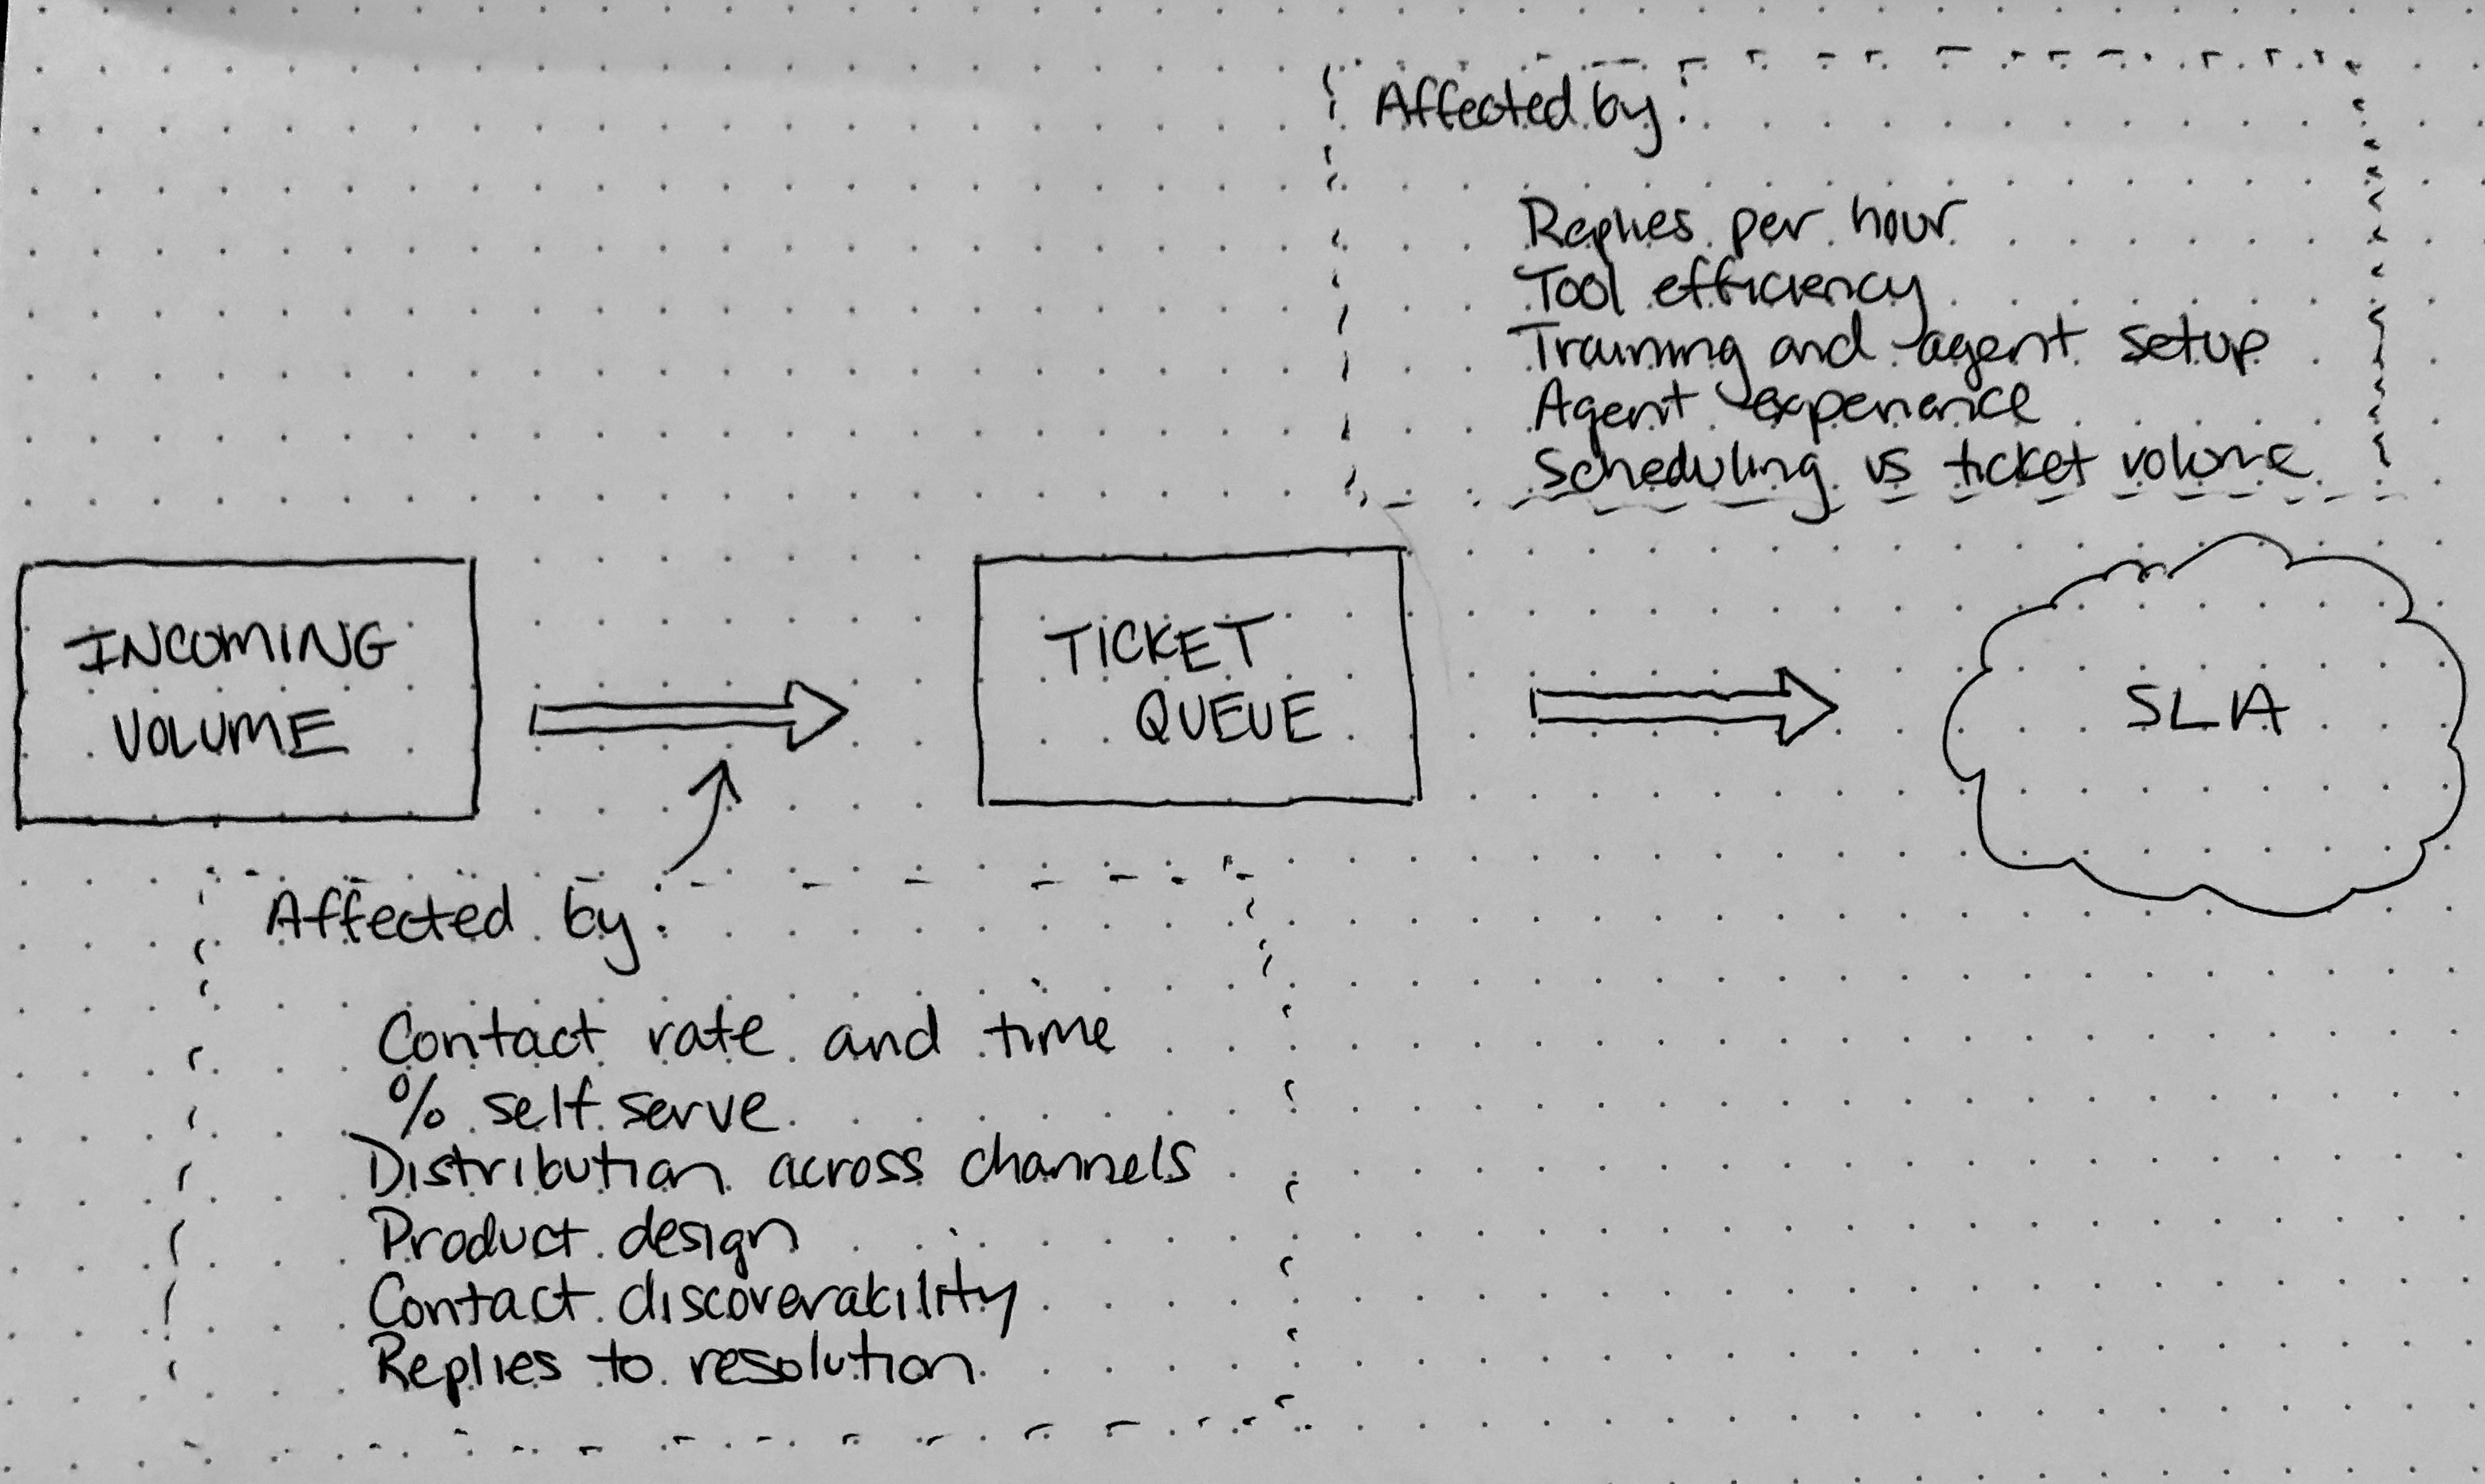 Affected by:
Replies per hour
Tool efficiency
Training and agent setup
Agent experience
Scheduling vs ticket volume
INCOMING
VOLUME
TICKET
QUEUE
SLA
Affected by:
Contact rate and time
% self serve
Distribution across channels
Product design
Contact discoverability
Replies to resolution